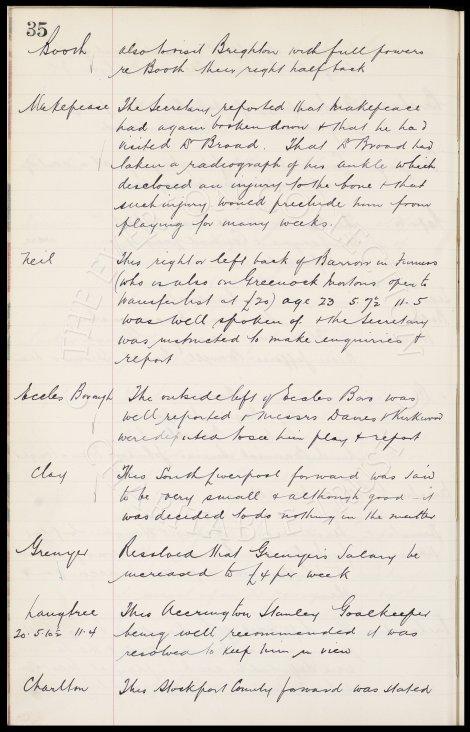 35
Booth also to visit Brighton with full powers
re Booth their right half back
Makepeace The Secretary reported that Makepeace
had again broken down & that he had
visited Dr Broad. That Dr Broad had
taken a radiograph of his ankle which
disclosed an injury to the bone & that
such injury would preclude him from
playing for many weeks.
Neil This right or left back of Barrow in Furness
(who is also on Greenock Mortons open to
transfer list at £20) age 23 5.7½ 11.5
was well spoken of & the Secretary
was instructed to make enquiries &
report
Eccles Borough The outside left of Eccles Boro was
well reported & Messrs Davies & Kirkwood
were deputed to see him play & report
Clay This South Liverpool forward was said
to be very small & although good it
was decided to do nothing in the matter
Grenyer Resolved that Grenyer's Salary be
increased to £4 per week
Langtree This Accrington Stanley Goalkeeper
20. 5.10½ 11.4 being well recommended it was
resolved to keep him in view
Charlton This Stockport County forward was stated